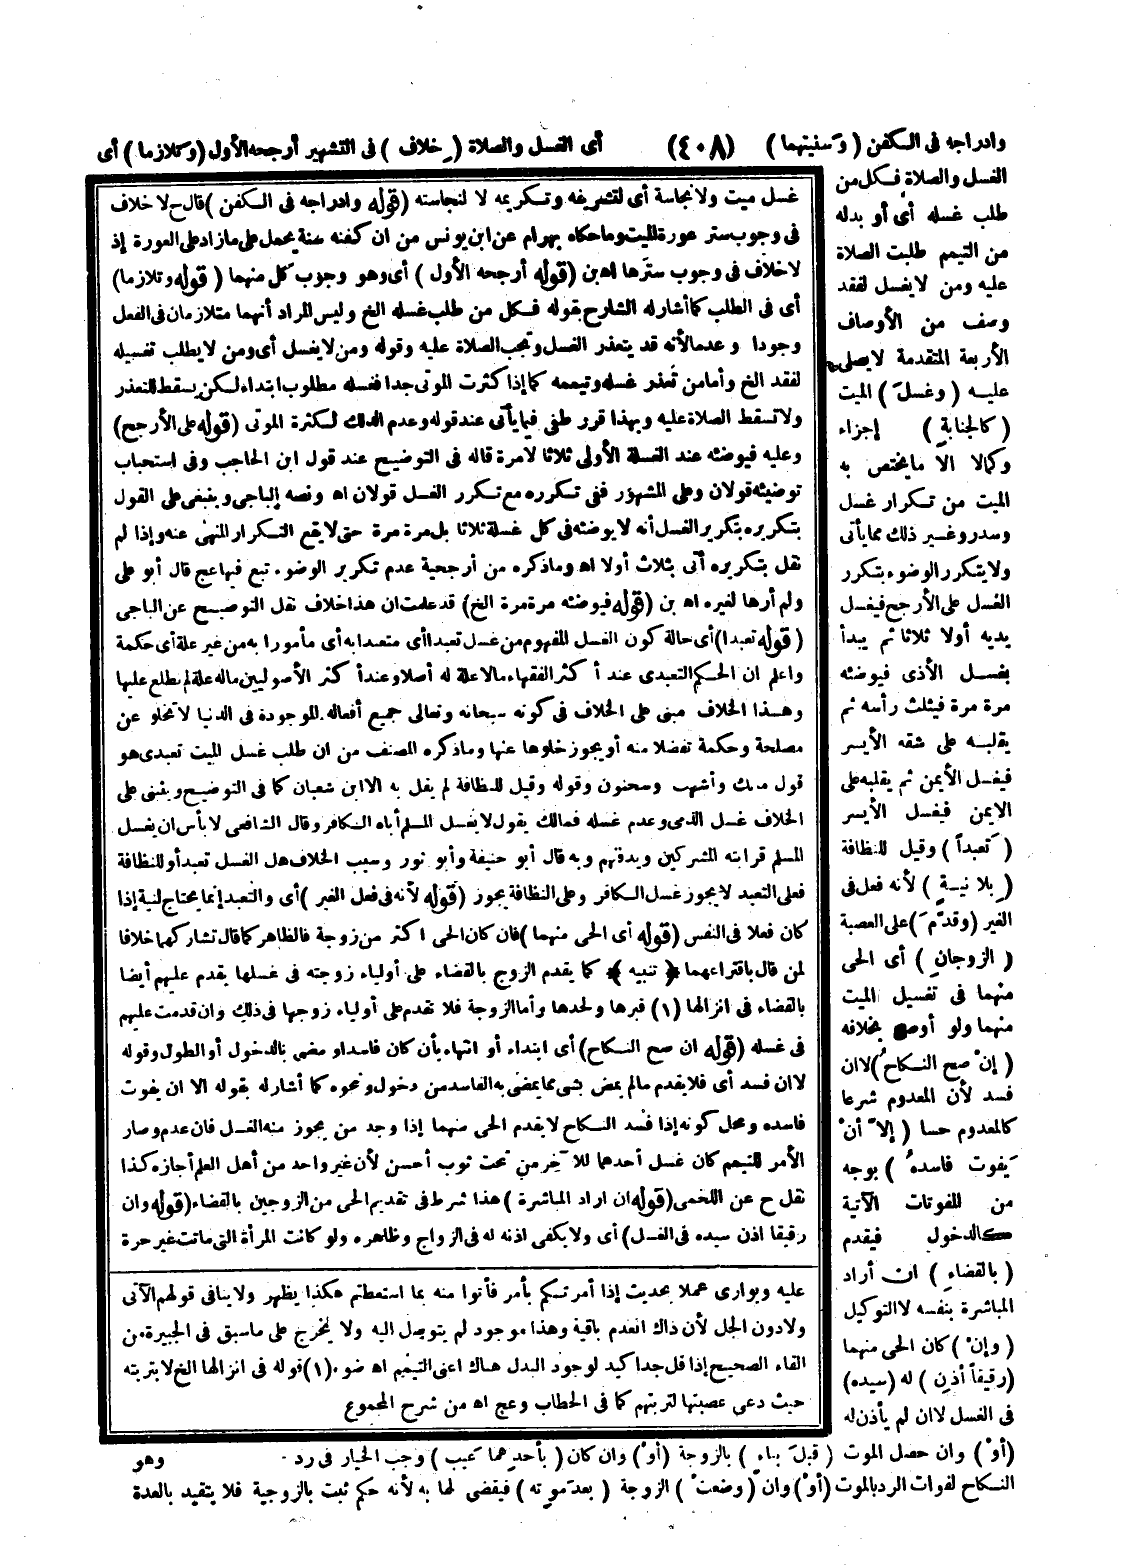 وادراجه فى الكفن (وسنيتهما) (٤٠٨) أى الغسل والصلاة (خلاف) فى التشهير أرجحه الأول (وتلازما) أى
الغسل والصلاة فكل من
طلب غسله أى أو بدله
من التيمم طلبت الصلاة
عليه ومن لا يغسل لفقد
وصف من الأوصاف
الأربعة المتقدمة لا يصلى
عليه (وغسل) الميت
(كالجنابة) إجزاء
وكمالا الا ما يختص به
الميت من تكرار غسل
وسدر وغير ذلك مما يأتى
ولا يتكرر الوضوء بتكرر
الغسل على الأرجح فيغسل
يديه أولا ثلاثا ثم يبدأ
بغسل الأذى فيوضئه
مرة مرة فيثلث رأسه ثم
يقلبه على شقه الأيسر
فيغسل الأيمن ثم يقلبه على
الايمن فيغسل الأيسر
(تعبداً) وقيل للنظافة
(بلا نية) لأنه فعل فى
الغير (وقدم) على العصبة
(الزوجان) أى الحى
منهما فى تغسيل الميت
منهما ولو أوصى بخلافه
(إن صح النكاح) لا ان
فسد لأن المعدوم شرعا
كالمعدوم حسا (إلا أن
يفوت فاسده) بوجه
من المفوتات الآتية
كالدخول فيقدم
(بالقضاء) ان أراد
المباشرة بنفسه لا التوكيل
(وإن) كان الحى منهما
(رقيقاً أذن) له (سيده)
فى الغسل لا ان لم يأذن له
(أو) وان حصل الموت (قبل بناء) بالزوجة (أو) وان كان (بأحدهما عيب) وجب الخيار فى رد
النكاح لفوات الرد بالموت (أو) وان (وضعت) الزوجة (بعد موته) فيقضى لها به لأنه حكم ثبت بالزوجية فلا يتقيد بالعدة
وهو
غسل ميت ولا نجاسة أى لتشريفه وتكريمه لا لنجاسته (قوله وادراجه فى الكفن) قال ح لا خلاف
فى وجوب ستر عورة الميت وما حكاه بهرام عن ابن يونس من ان كفنه سنة يحمل على ما زاد على العورة إذ
لا خلاف فى وجوب سترها اه بن (قوله أرجحه الأول) أى وهو وجوب كل منهما (قوله وتلازما)
أى فى الطلب كما أشار له الشارح بقوله فكل من طلب غسله الخ وليس المراد أنهما متلازمان فى الفعل
وجودا وعدما لأنه قد يتعذر الغسل وتجب الصلاة عليه وقوله ومن لا يغسل أى ومن لا يطلب تغسيله
لفقد الخ وأما من تعذر غسله وتيممه كما إذا كثرت الموتى جدا فغسله مطلوب ابتداء لكن يسقط للتعذر
ولا تسقط الصلاة عليه وبهذا قرر طفى فيما يأتى عند قوله وعدم الدلك لكثرة الموتى (قوله على الأرجح)
وعليه فيوضئه عند الغسلة الأولى ثلاثا لا مرة قاله فى التوضيح عند قول ابن الحاجب وفى استحباب
توضيئه قولان وعلى المشهور ففى تكرره مع تكرر الغسل قولان اه ونصه الباجى وينبغى على القول
بتكريره بتكرير الغسل أنه لا يوضئه فى كل غسلة ثلاثا بل مرة مرة حتى لا يقع التكرار المنهى عنه وإذا لم
نقل بتكريره أتى بثلاث أولا اه وما ذكره من أرجحية عدم تكرير الوضوء تبع فيها عج قال أبو على
ولم أرها لغيره اه بن (قوله فيوضئه مرة مرة الخ) قد علمت ان هذا خلاف نقل التوضيح عن الباجى
(قوله تعبدا) أى حالة كون الغسل المفهوم من غسل تعبدا أى متعبدا به أى مأمورا به من غير علة أى حكمة
واعلم ان الحكم التعبدى عند أكثر الفقهاء ما لا علة له أصلا وعند أكثر الأصوليين ما له علة لم يطلع عليها
وهذا الخلاف مبنى على الخلاف فى كونه سبحانه وتعالى جميع أفعاله الموجودة فى الدنيا لا تخلو عن
مصلحة وحكمة تفضلا منه أو يجوز خلوها عنها وما ذكره المصنف من ان طلب غسل الميت تعبدى هو
قول مالك وأشهب وسحنون وقوله وقيل للنظافة لم يقل به الا ابن شعبان كما فى التوضيح وينبنى على
الخلاف غسل الذمى وعدم غسله فمالك يقول لا يغسل المسلم أباه الكافر وقال الشافعى لا بأس ان يغسل
المسلم قرابته المشركين ويدفنهم وبه قال أبو حنيفة وأبو ثور وسبب الخلاف هل الغسل تعبد أو للنظافة
فعلى التعبد لا يجوز غسل الكافر وعلى النظافة يجوز (قوله لأنه فى فعل الغير) أى والتعبد إنما يحتاج لنية إذا
كان فعلا فى النفس (قوله أى الحى منهما) فان كان الحى اكثر من زوجة فالظاهر كما قال تشاركهما خلافا
لمن قال باقتراعهما ﴿تنبيه﴾ كما يقدم الزوج بالقضاء على أولياء زوجته فى غسلها يقدم عليهم أيضا
بالقضاء فى انزالها (١) قبرها ولحدها وأما الزوجة فلا تقدم على أولياء زوجها فى ذلك وان قدمت عليهم
فى غسله (قوله ان صح النكاح) أى ابتداء أو انتهاء بأن كان فاسدا ومضى بالدخول أو الطول وقوله
لا ان فسد أى فلا يقدم ما لم يمض بشى مما يمضى به الفاسد من دخول ونحوه كما أشار له بقوله الا ان يفوت
فاسده ومحل كونه إذا فسد النكاح لا يقدم الحى منهما إذا وجد من يجوز منه الغسل فان عدم وصار
الأمر للتيمم كان غسل أحدهما للآخر من تحت ثوب أحسن لأن غير واحد من أهل العلم أجازه كذا
نقل ح عن اللخمى (قوله ان اراد المباشرة) هذا شرط فى تقديم الحى من الزوجين بالقضاء (قوله وان
رقيقا اذن سيده فى الغسل) أى ولا يكفى اذنه له فى الزواج وظاهره ولو كانت المرأة التى ماتت غير حرة
عليه ويوارى عملا بحديث إذا أمرتكم بأمر فأتوا منه بما استطعتم هكذا يظهر ولا ينافى قولهم الآتى
ولا دون الجل لأن ذاك انعدم باقيه وهذا موجود لم يتوصل اليه ولا يخرج على ما سبق فى الجبيرة من
الغاء الصحيح إذا قل جدا كيد لوجود البدل هناك اعنى التيمم اه ضوء (١) قوله فى انزالها الخ لا بتربته
حيث دعى عصبتها لتربتهم كما فى الحطاب وعج اه من شرح المجموع